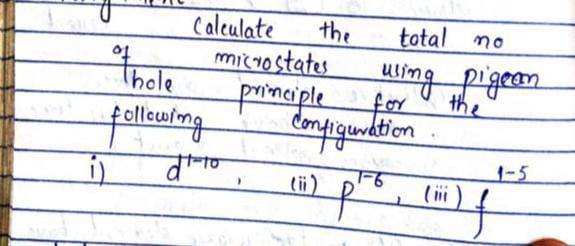 Calculate the total no
of microstates using pigeon
hole principle for the
following configuration.
i) d¹⁻¹⁰, (ii) p¹⁻⁶, (iii) f¹⁻⁵